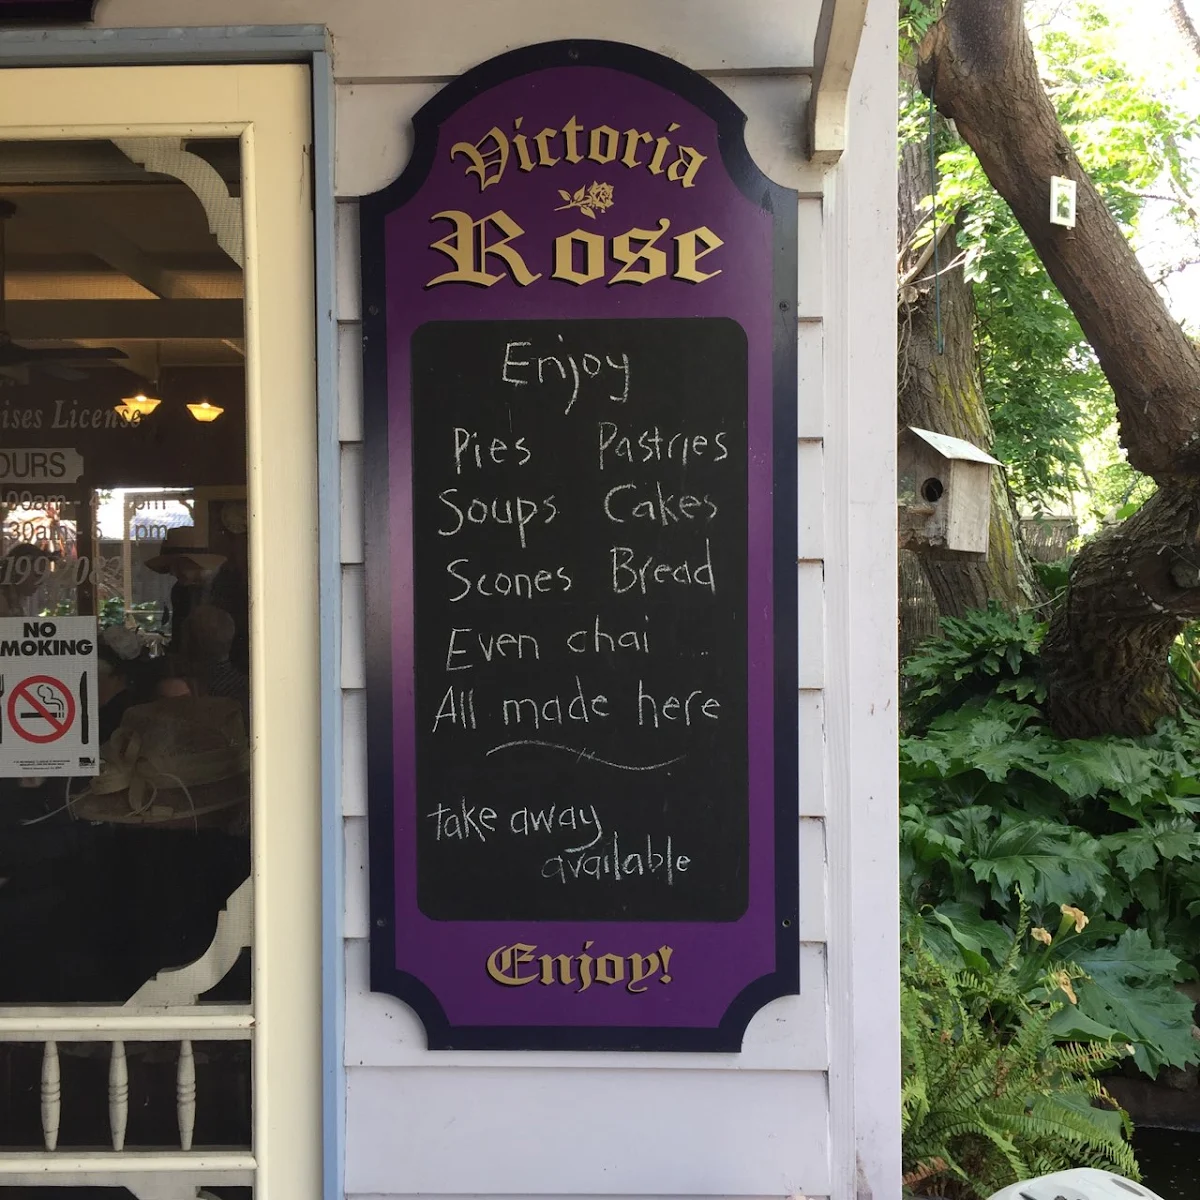 Victoria
Rose
Enjoy
Pies Pastries
Soups Cakes
Scones Bread
Even chai
All made here
take away
available
Enjoy!
License
NO
MOKING